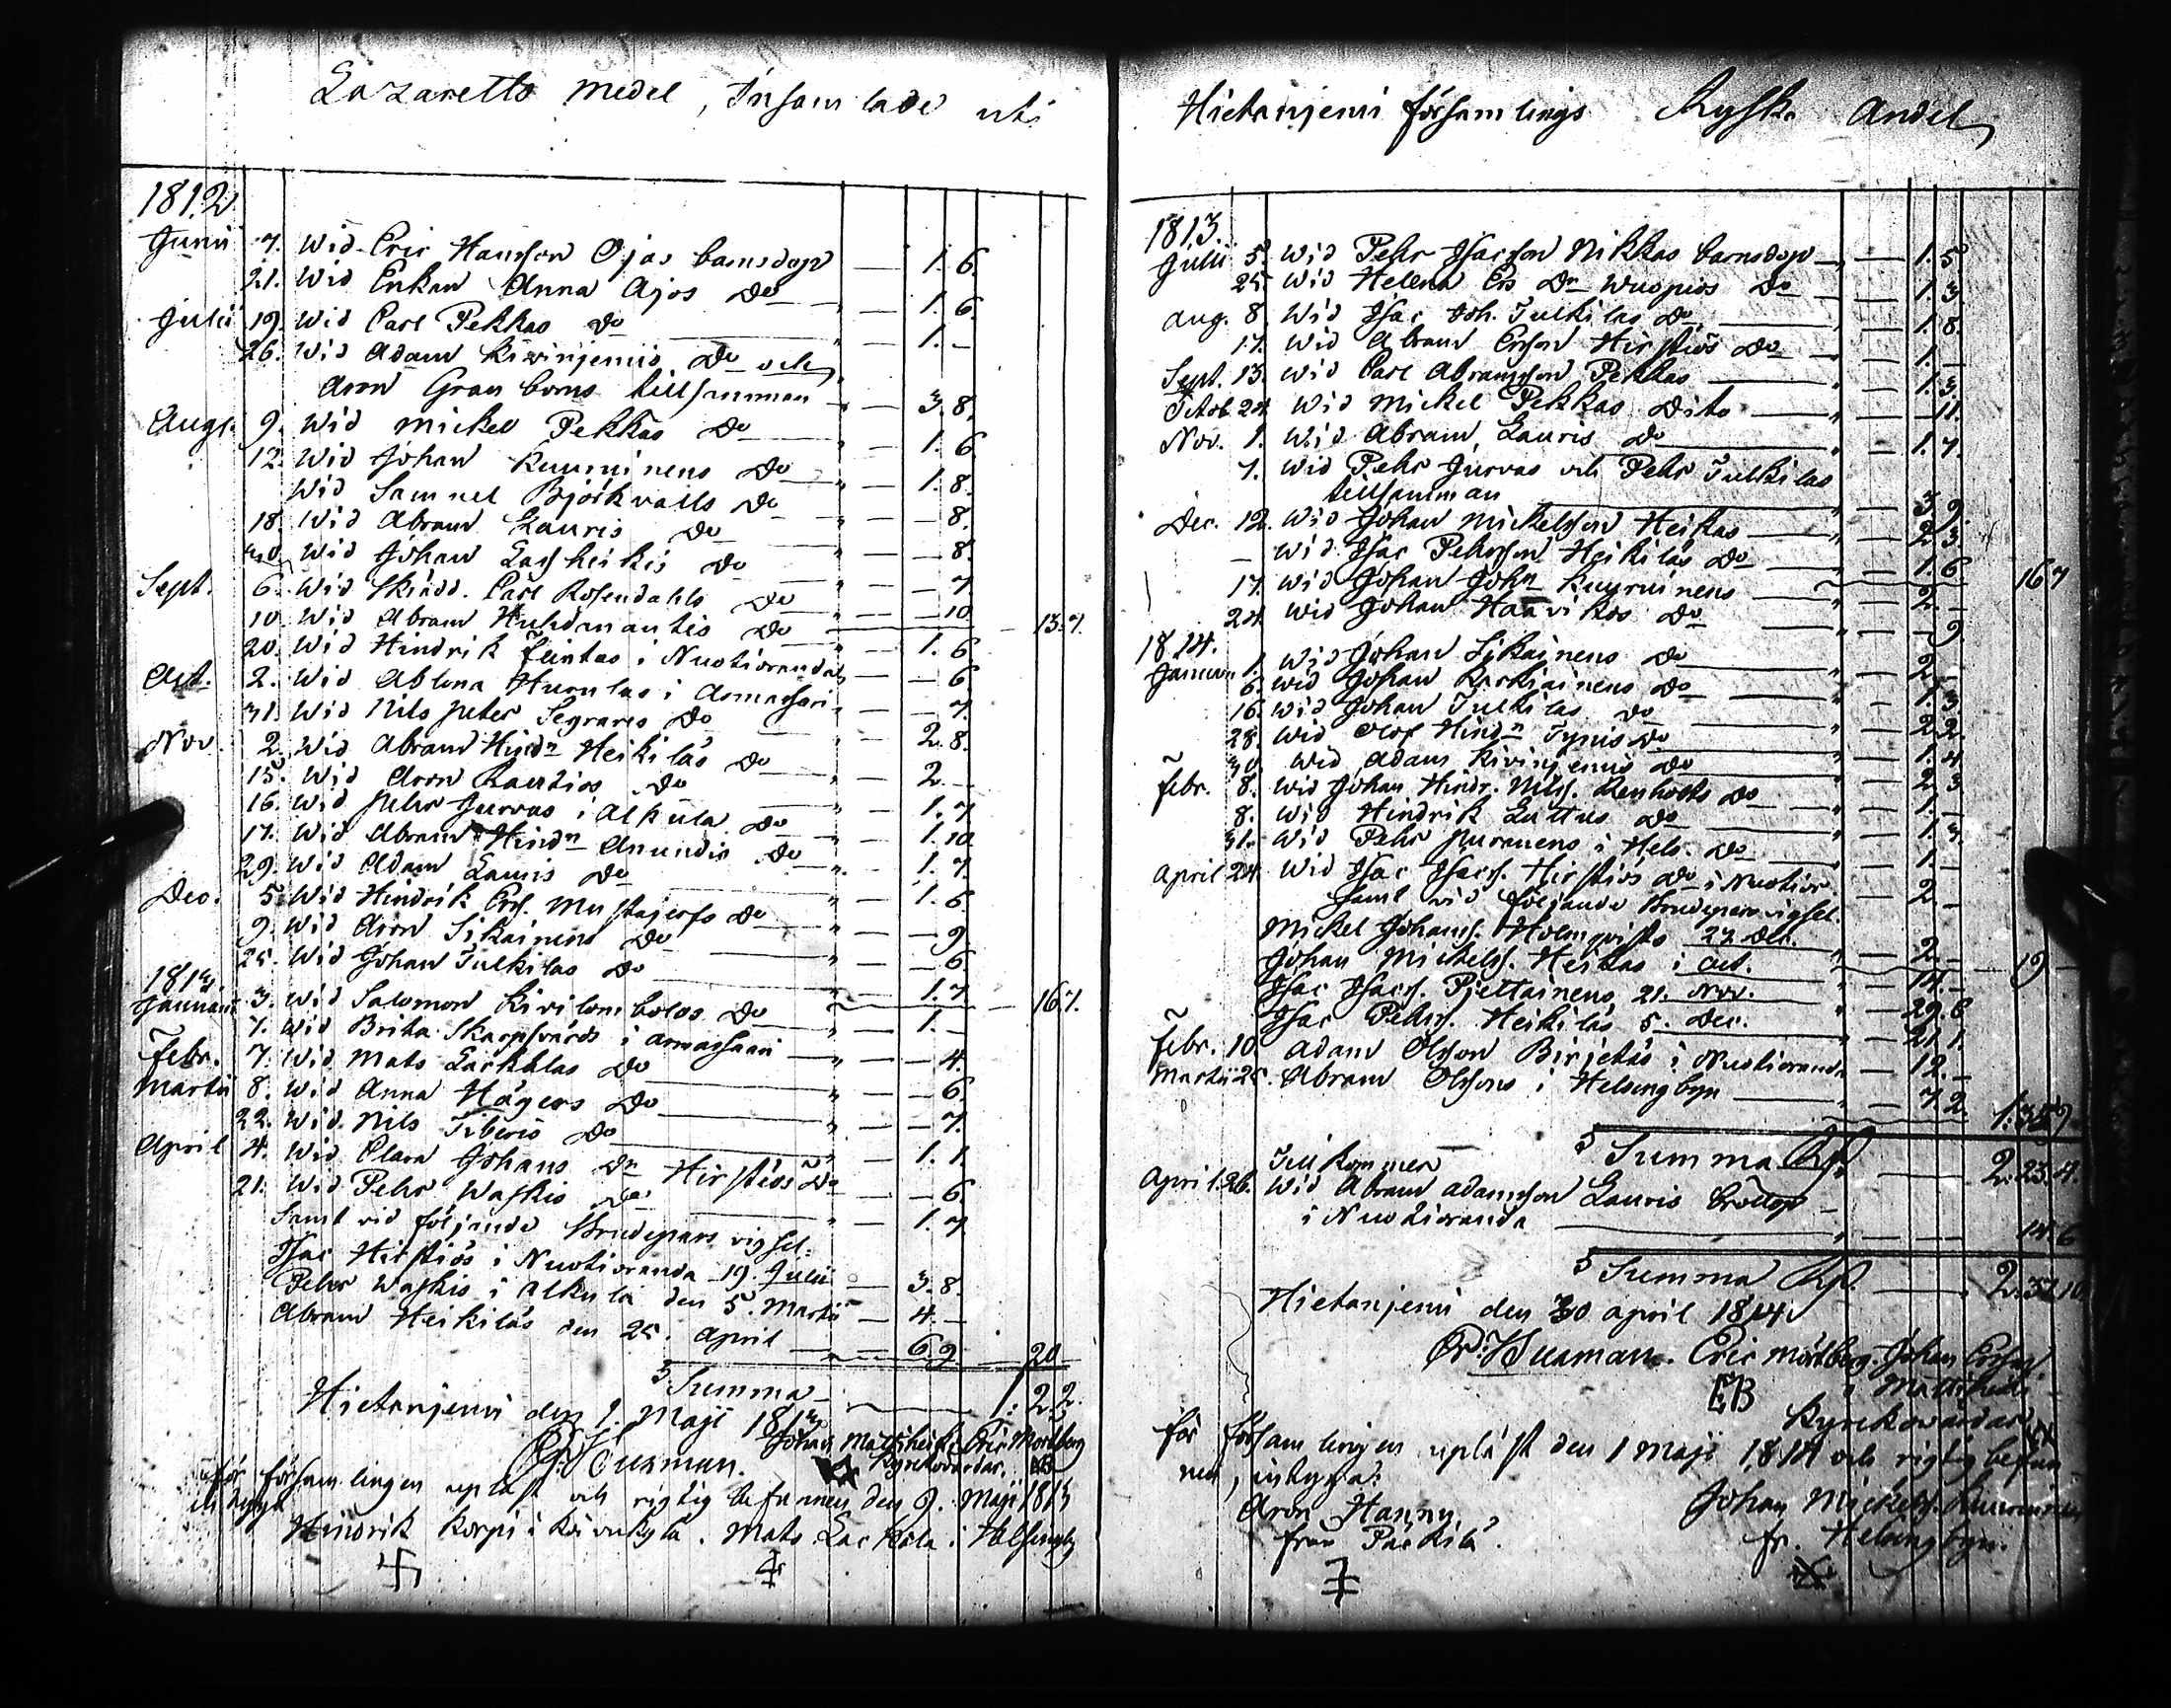 Lazaretts Medel, Insamlade uti
1812
Junii 7. Wid Eric Hansson Ojas barnsdop " — 1. 6.
21. Wid Enkan Anna Ajos Do " — 1. 6.
Julii 19. Wid Carl Pekkas Do " — 1. —
26. Wid Adam Kivinjemis Do och
Aron Granboms tillsamman " — 3. 8.
Aug. 9. Wid Mickel Pekkas Do " — 1. 6
12. Wid Johan Kuurninens Do " — 1. 8.
Wid Samuel Björkvalls Do " — — 8.
18. Wid Abram Lauris Do " — — 8.
Wid Johan Lassheikis Do " — — 7.
Sept. 6. Wid Skindd. Carl Rosendahls Do " — — 10.
10. Wid Abram Huhdmantis Do — 13. 7.
20. Wid Hindrik Flinkas i Nuotioranda Do " 1. 6
Oct. 2. Wid Ablona Hurulas i Armassari " — — 6.
31. Wid Nils Peter Segrares Do " — — 7.
Nov. 2. Wid Abram Hindn Heikiläs Do " — 2. 8.
15. Wid Aron Rautios Do " — 2. —
16. Wid Pehr Jurvas i Alkula Do " — 1. 7
17. Wid Abram Hindn Anundis Do " — 1. 10
29. Wid Adam Lauris Do " — 1. 7.
Dec. 5. Wid Hindrik Ers. Mustajerfs Do " — 1. 6.
9. Wid Aron Sikainens Do " — — 9.
25. Wid Johan Tulkilas Do " — — 6.
1813 1. 7
Januari 3. Wid Salomon Kivilombolos Do — 16 7.
7. Wid Brita Skarpsvärds i Armassaari " — 1. —
Febr. 7. Wid Mats Lackalas Do " — — 4.
Martii 8. Wid Anna Hägers Do " — — 6.
22. Wid Nils Tiberis Do " — — 7.
April 4. Wid Clara Johans Dr Hirstiös Do " — 1. 1.
21. Wid Pehr Waskis Do " — — 6
Samt vid följande Brudepars vigsel: 1. 7
Isac Hirstiös i Nuotioranda 19. Julii — 3. 8.
Pehr Waskis i Alkula den 5. Martii — 4. —
Abram Heikiläs den 25. April — 6. 9. 20
Summa 1: 2. 2.
Hietanjemi den 1. Maji 1813
Johan Mattiheiki Eric Mörtberg
Kyrkovärdar. EB
för församlingen upläst och rigtig befunnen den 9. Maji 1813
Hindrik Korpi i Koivukylä. Mats Lackala i Helsingby
Hietanjemi församlings Ryska Andel,
1813.
Julii 5. Wid Pehr Isacsson Nikkas barnsdop — 1. 5
25. Wid Helena Ers Dr Wuopios Do — 1. 3.
Aug. 8. Wid Isac Joh. Tulkilas Do — 1. 8.
17. Wid Abram Ersson Hirstiös Do — 1. —
Sept. 13. Wid Carl Abramsson Pekkas — 1. 3.
Octob. 24. Wid Mickel Pekkas Dito — 11.
Nov. 1. Wid Abram Lauris Do — 1. 7.
7. Wid Pehr Jurvas och Pehr Tulkilas
tillsamman — 3. 9.
Dec. 12. Wid Johan Mickelsson Heikas — 2. 3.
— Wid Isac Pehrsson Heikiläs Do — 1. 6.
17. Wid Johan John Kuurninens — 2. — 16 7
24 Wid Johan Haavikos Do — 9.
1814.
Januari 1. Wid Johan Sikainens Do — 2. —
6. Wid Johan Karkiainens Do — 1. 3
16. Wid Johan Tulkilas Do — 2. 2.
28. Wid Olof Hindn Tynis Do — 1. 4
30. Wid Adam Kivinjemis Do — 2. 3
Febr. 8. Wid Johan Hindr. Nils. Renholts Do — 1. —
8. Wid Hindrik Luttus Do — 1. 3.
31. Wid Pehr Puranens i Hels. Do — 1. —
April 24. Wid Isac Isacs. Hirstiös Do i Nuotior. 2. —
Samt vid följande Brudepars vigsel.
Mickel Johans. Holmqvists 27. Dec. 2. —
Johan Mickels. Heikas i Oct. 14. — 19
Isac Isacs. Pjettainens 21. Nov. 29. 6
Isac Pehrs. Heikiläs 5. Dec. 21. 1.
Febr. 10. Adam Olsson Birjetäs i Nuotioranda — 12. —
Martii 25. Abram Olssons i Helsingbyn — 7. 2. 1. 35 9
Summa Rd. 2. 23. 4.
Tillkommer
April 26. Wid Abram Adamsson Lauris bröllop
i Nuotioranda 14. 6
Summa Rd. 2. 37. 10
Hietanjemi den 30 April 1814.
Eric Mörtberg. Johan Ersson
EB i Mattiheiki
Kyrkovärdar
för församlingen upläst den 1 Maji 1814 och rigtig befun-
nen, intyga:
Aron Hannu Johan Mickels. Kuurninen
från Päckilä. fr. Helsingbyn.